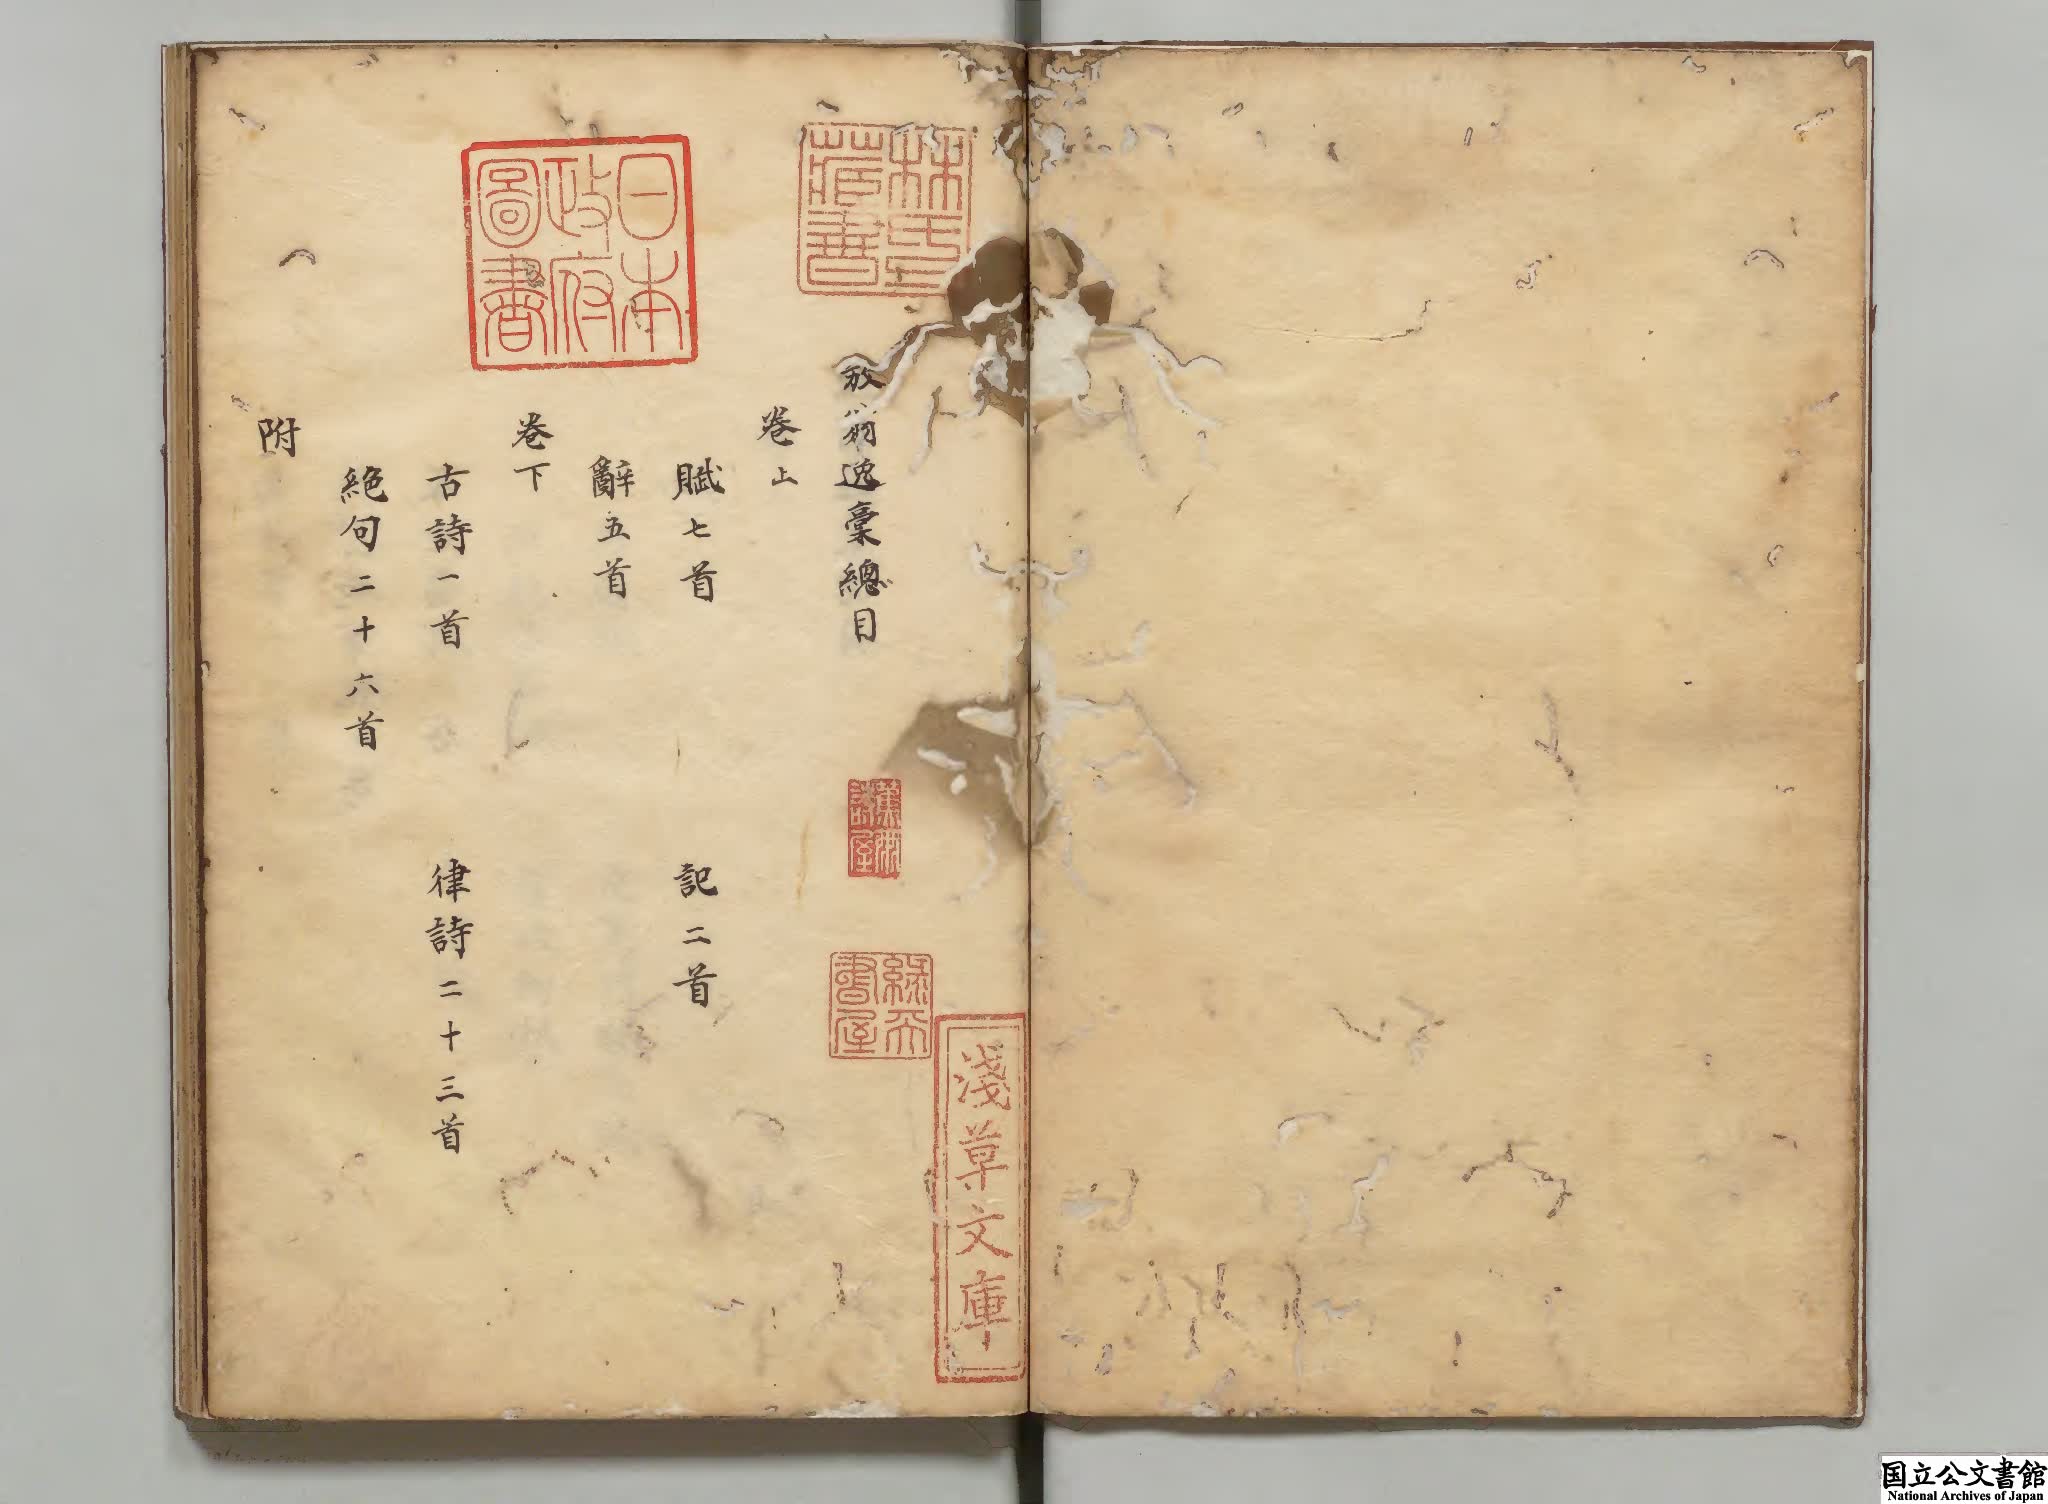 放翁逸稾總目
卷上
賦七首 記二首
辭五首
卷下
古詩一首 律詩二十三首
絶句二十六首
附
日本政府圖書
淺草文庫
林氏藏書
國立公文書館
National Archives of Japan